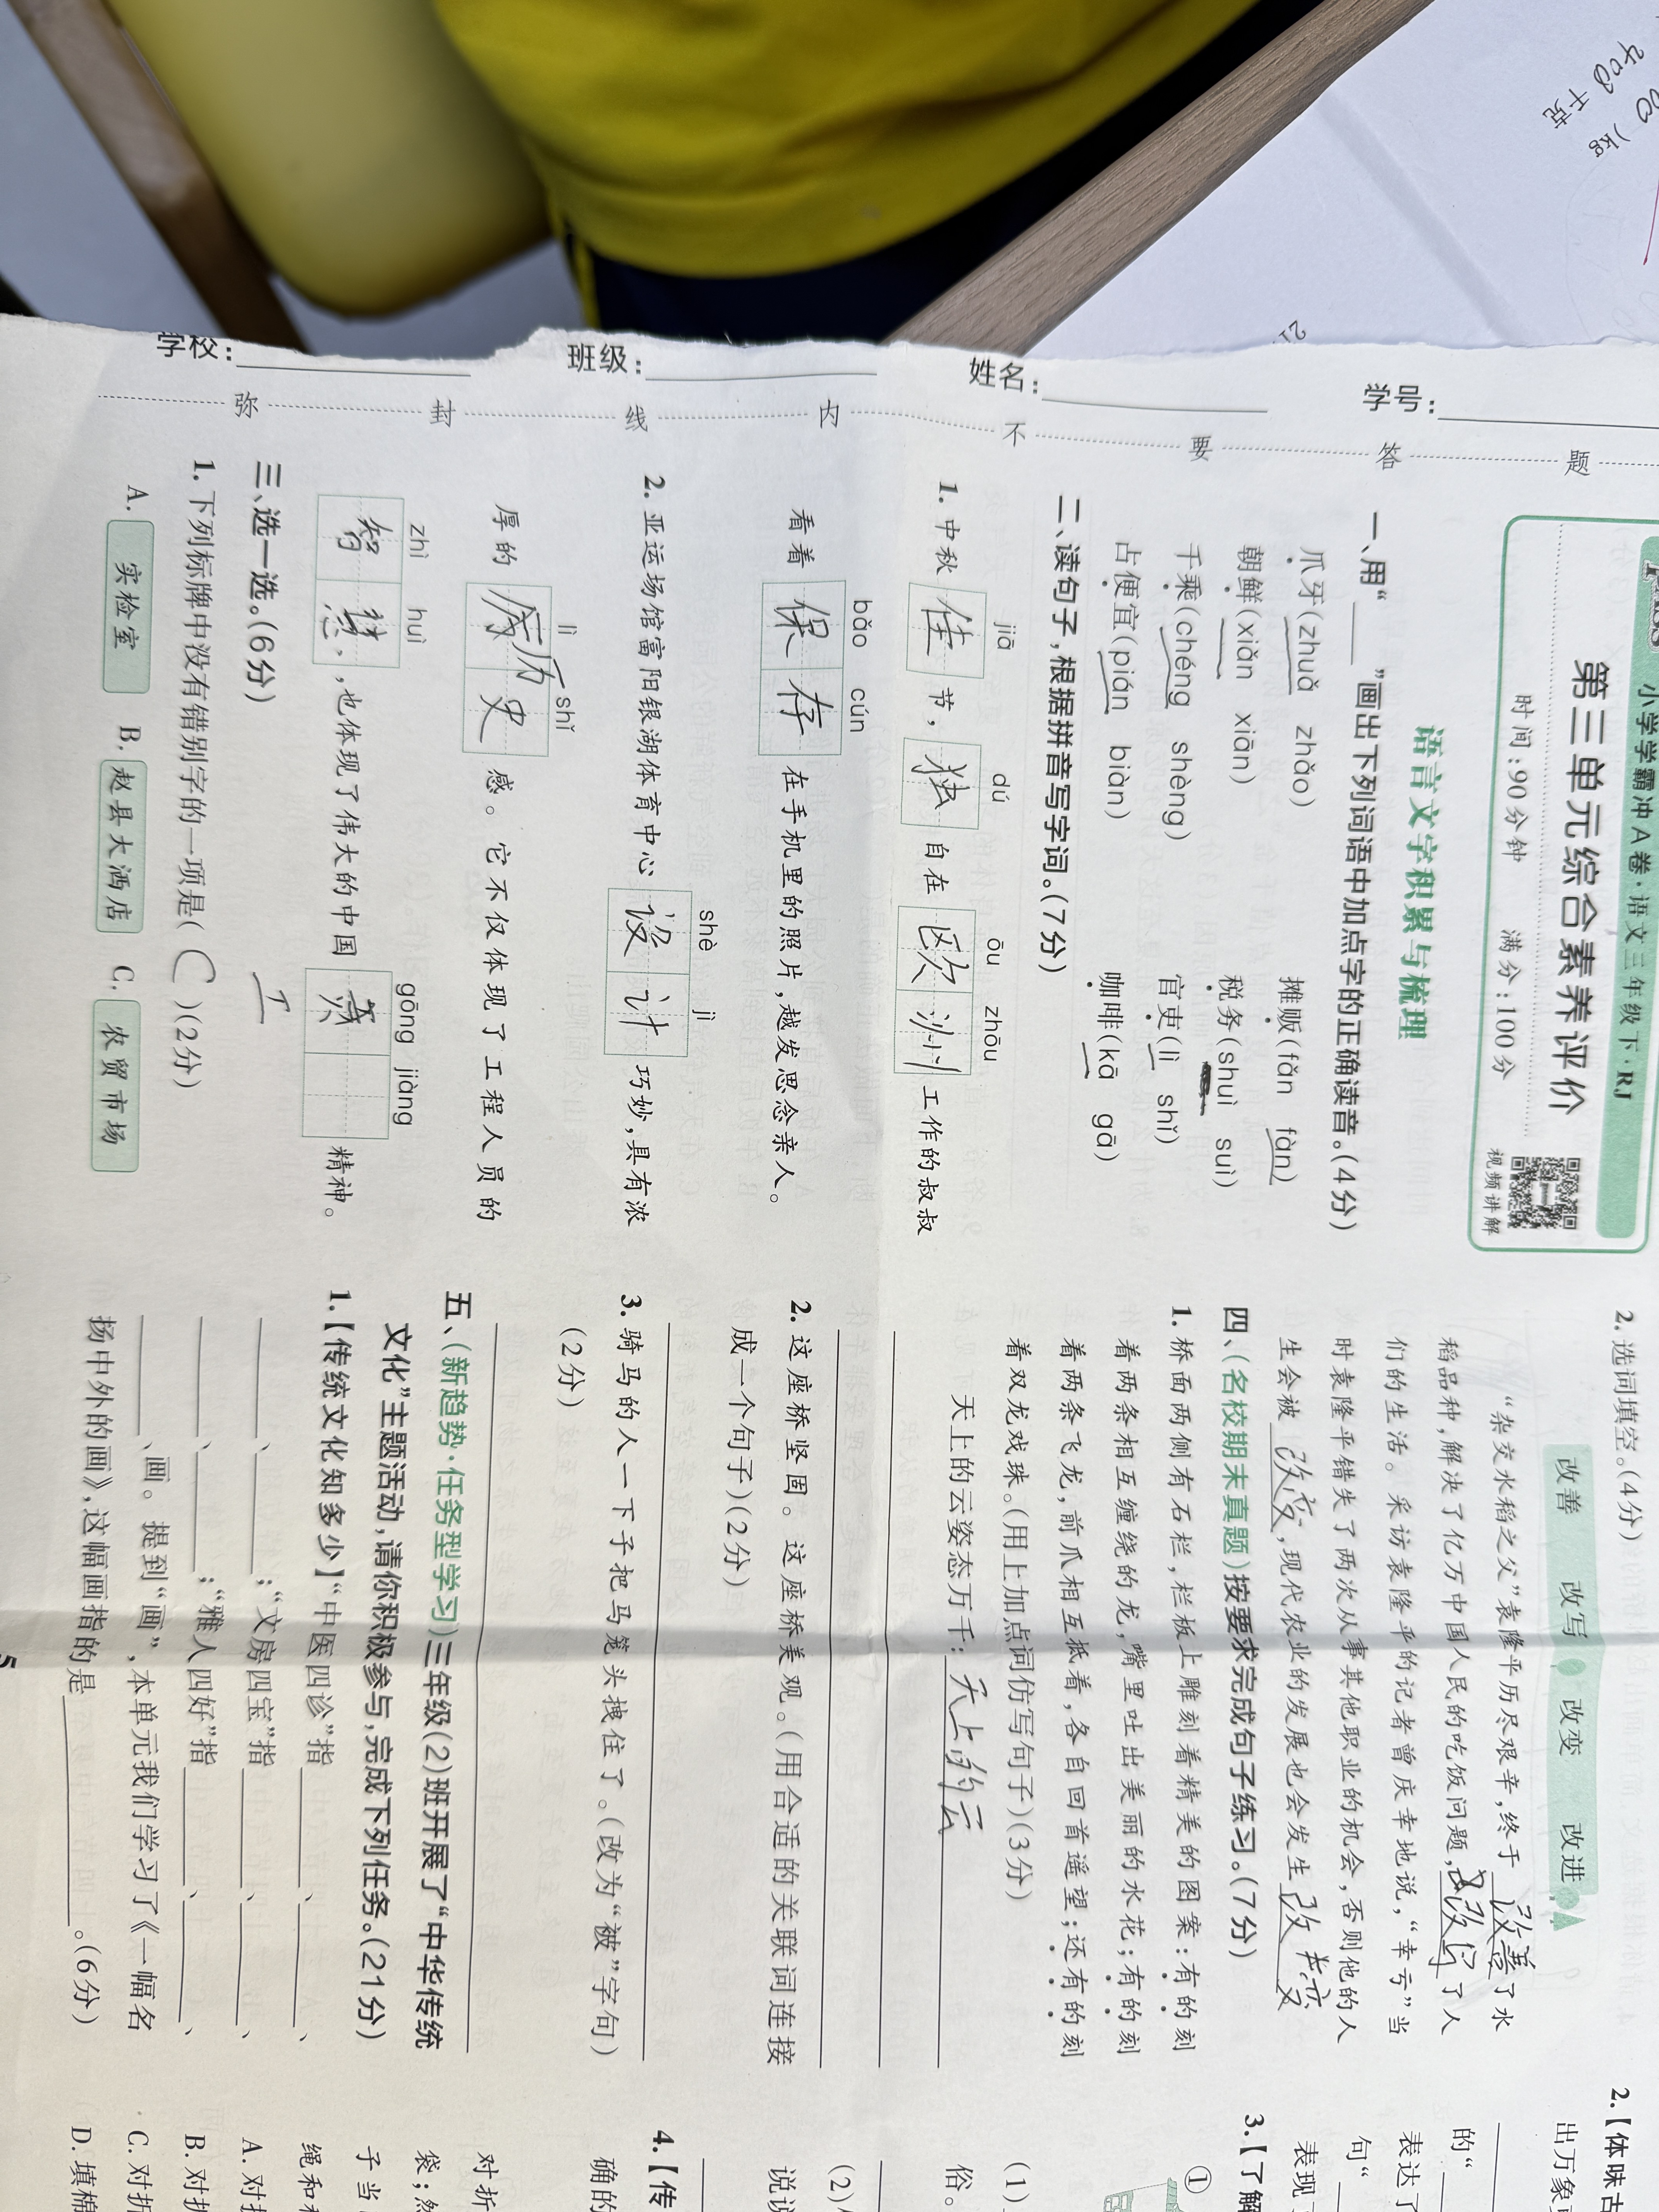 学校：
班级：
姓名：
学号：
弥 封 线 内 不 要 答 题
小学学霸冲A卷·语文三年级下·RJ
第三单元综合素养评价
时间：90分钟 满分：100分
视频讲解
语言文字积累与梳理
一、用“____”画出下列词语中加点字的正确读音。(4分)
爪牙(zhuǎ zhǎo) 摊贩(fǎn fàn)
朝鲜(xiǎn xiān) 税务(shuì suì)
千乘(chéng shèng) 官吏(lì shǐ)
占便宜(pián biàn) 咖啡(kā gā)
二、读句子，根据拼音写字词。(7分)
jiā dú ōu zhōu
1. 中秋佳节，独自在欧洲工作的叔叔
bǎo cún
看着保存在手机里的照片，越发思念亲人。
shè jì
2. 亚运场馆富阳银湖体育中心设计巧妙，具有浓
lì shǐ
厚的历史感。它不仅体现了工程人员的
zhì huì gōng jiàng
智慧，也体现了伟大的中国 精神。
工
三、选一选。(6分)
1. 下列标牌中没有错别字的一项是( C )(2分)
A. 实检室 B. 赵县大洒店 C. 农贸市场
2. 选词填空。(4分)
改善 改写 改变 改进
“杂交水稻之父”袁隆平历尽艰辛，终于改善了水
稻品种，解决了亿万中国人民的吃饭问题，改写了人
们的生活。采访袁隆平的记者曾庆幸地说，“幸亏”当
时袁隆平错失了两次从事其他职业的机会，否则他的人
生会被改变，现代农业的发展也会发生改变
四、(名校期末真题)按要求完成句子练习。(7分)
1. 桥面两侧有石栏，栏板上雕刻着精美的图案：有的刻
着两条相互缠绕的龙，嘴里吐出美丽的水花；有的刻
着两条飞龙，前爪相互抵着，各自回首遥望；还有的刻
着双龙戏珠。(用上加点词仿写句子)(3分)
天上的云姿态万千：天上的云
2. 这座桥坚固。这座桥美观。(用合适的关联词连接
成一个句子)(2分)
3. 骑马的人一下子把马笼头拽住了。(改为“被”字句)
(2分)
五、(新趋势·任务型学习)三年级(2)班开展了“中华传统
文化”主题活动，请你积极参与，完成下列任务。(21分)
1.【传统文化知多少】“中医四诊”指____、____、
____、____；“文房四宝”指____、____、
____、____；“雅人四好”指____、____、
____、画。提到“画”，本单元我们学习了《一幅名
扬中外的画》，这幅画指的是____。(6分)
5
2.【体味古
出万象
的“
表达了
句“
表现
3.【了解
①
(1)
俗。
(2)
说说
4.【传
确的
对折
袋；
子当
绳和
A. 对
B. 对折
C. 对折
D. 填棉